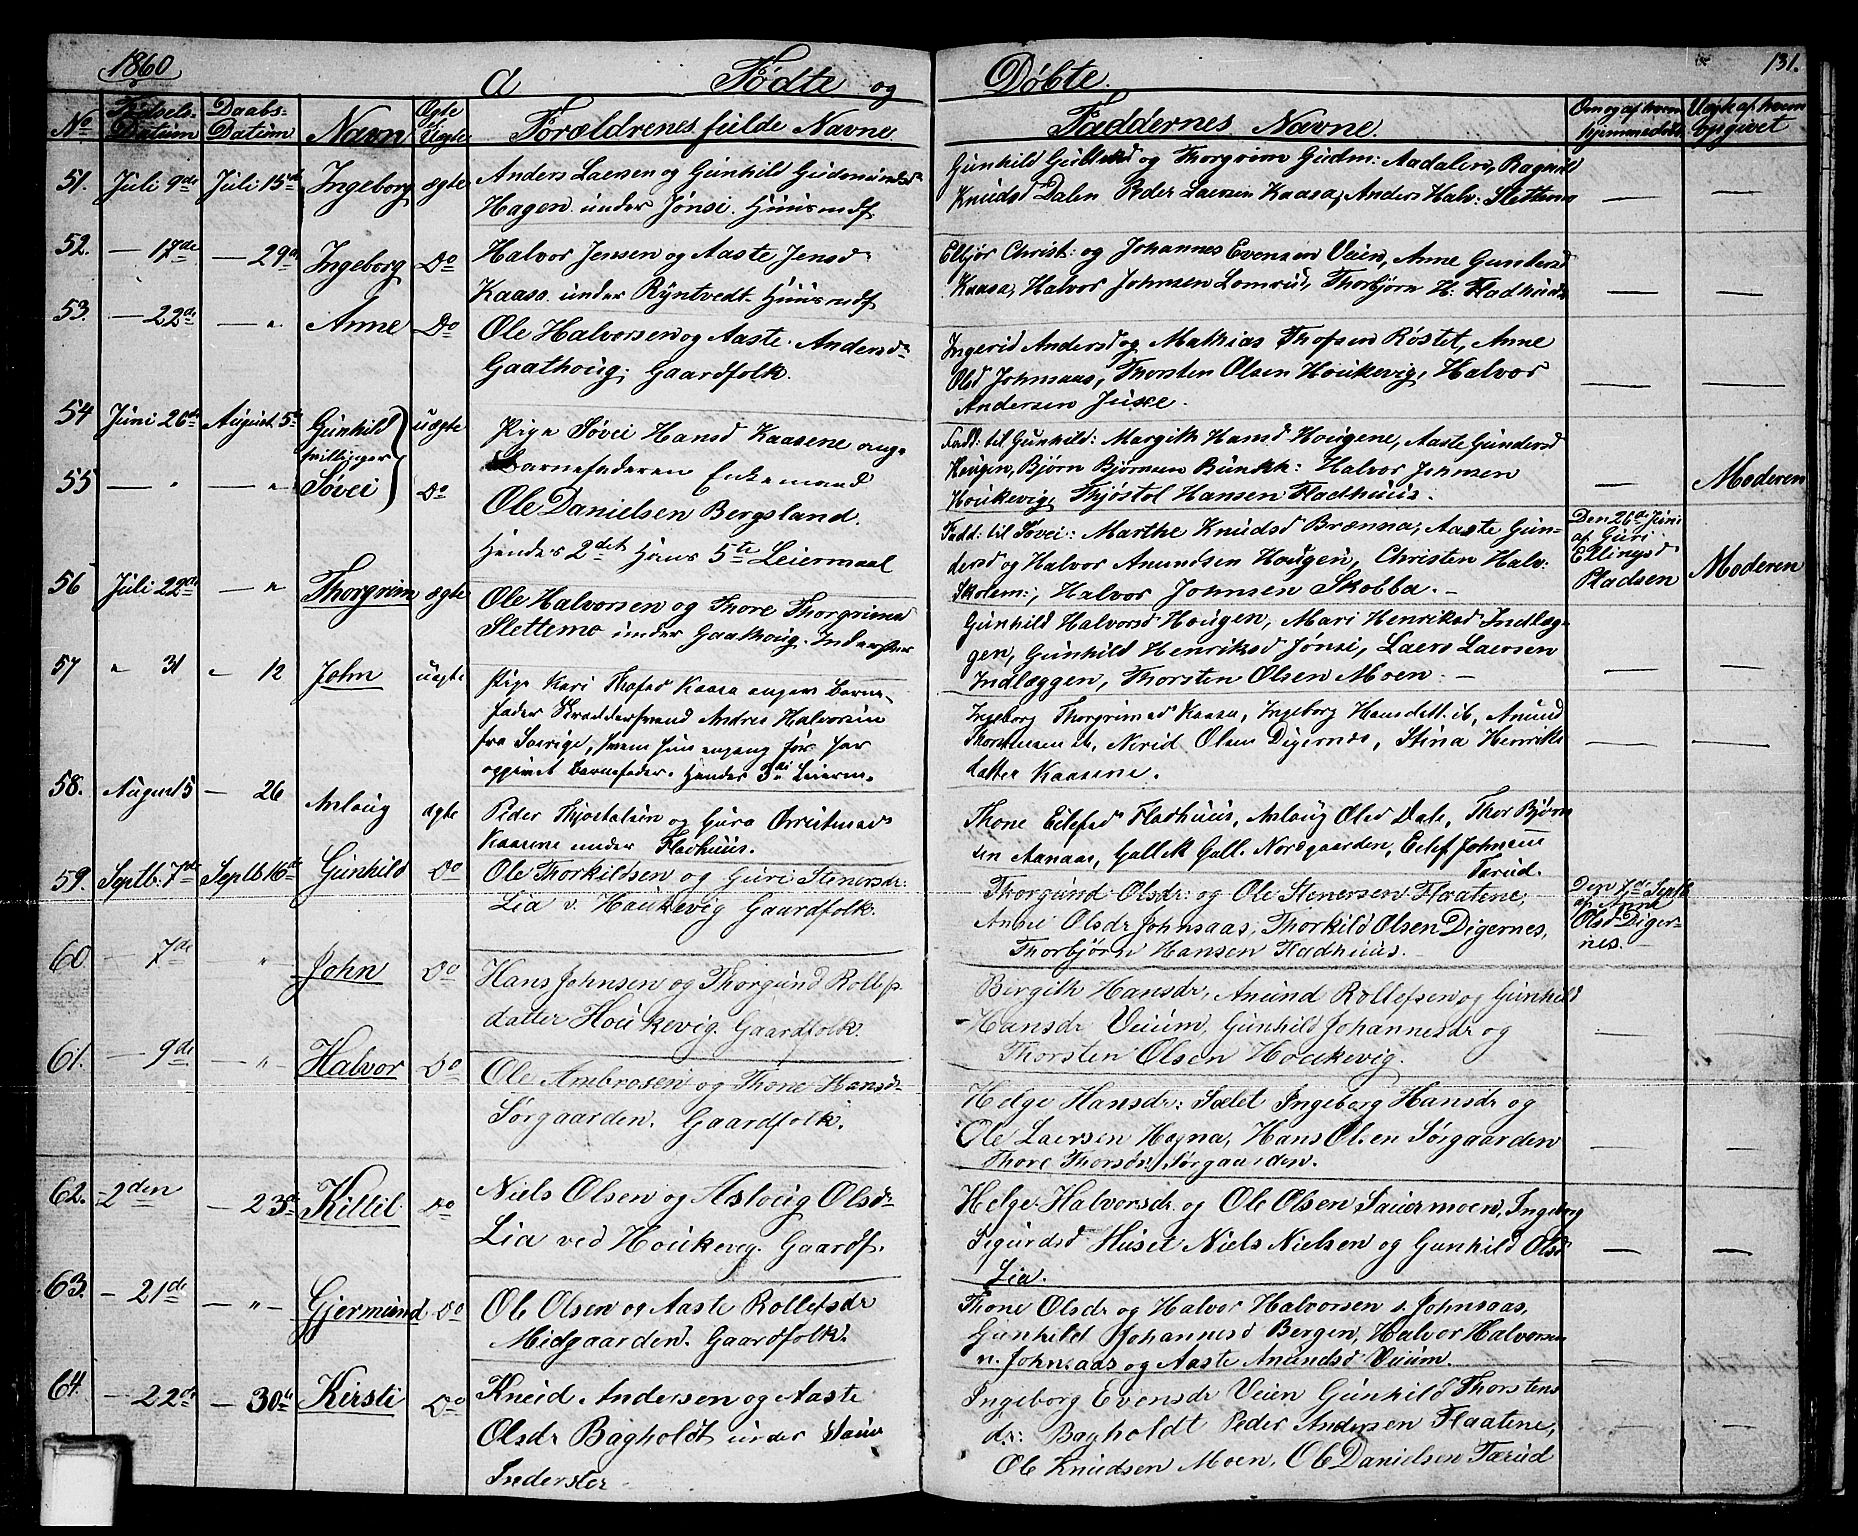 1860
a Fødte og Døbte. 131.
No Fødsels-Datum Daabs-Datum Navn Ægte Uægte Forældrenes fulde Navne. Faddernes Navne. Om og af hvem hjemmedøbt Uægte af hvem opgivet
51. Juli 9de Juli 15de Ingeborg ægte Anders Laersen og Gunhild Gudmundsd:
Hagen under Jønsi. Huusmdf
Gunhild Gulleksd og Thorgrim Gudm: Aadalen, Ragnild
Knudsd Dalen Peder Laersen Kaasa, Anders Halv: Slettemo — —
52. — 17de — 29de Ingeborg Do Halvor Jensen og Aaste Jensd:
Kaasa under Ryntvedt Huusmdf
Eljør Christ: og Johannes Evensen Veien, Anne Gundersd
Kaasa, Halvor Johnsen Lomrud, Thorbjørn H: Fladhuus — —
53. — 22de — " Anne Do Ole Halvorsen og Aaste Andersd:
Gaathoug; Gaardfolk.
Ingerid Andersd og Mathias Thofsen Røstet, Anne
Olsd Johnsaas, Thorsten Olsen Houkevig, Halvor
Andersen Juxe. — —
54 Juni 26de August 5te Gunhild uægte Pige Søvei Hansd Kaasene ang.
tvillinger
Barnefaderen Enkemand
55 — " — " Søvei Do
Ole Danielsen Bergsland.
Hendes 2det Hans 5te Leiermaal
Fadd: til Gunhild: Margith Hansd Hougene, Aaste Gundersd
Hougen, Bjørn Bjørnsen Bunkh: Halvor Johnsen
Houkevig, Thjøstol Hansen Fladhuus. — Moderen
Fadd: til Søvei: Marthe Knudsd Brænna, Aaste Gun-
dersd og Halvor Amundsen Hougen, Christen Halv:
Skolem:, Halvor Johnsen Skobba. —
Den 26de Juni
af Guri
Ellingsd
Pladsen
Moderen
56 Juli 22de — " Thorgrim ægte Ole Halvorsen og Thore Thorgrimsd
Slettemo under Gaathoug. Inderster
Gunhild Halvorsd Hougen, Mari Henriksd Indlæg-
gen, Gunhild Henriksd Jønsi, Laers Laersen
Indlæggen, Thorsten Olsen Moen. — — —
57 " 31 " 12 John uægte Pige Kari Thofsd Kaasa angav Barne-
fader Skræddersvend Andres Halvorsen
fra Sverige, hvem hun engang før har
opgivet Barnefader. Hendes 3die Leierm.
Ingeborg Thorgrimsd Kaasa, Ingeborg Hansdatt. ib, Anund
Thorstensen ib, Nerid Olsen Digernes, Stina Henriks
datter Kaasene. — —
58. August 5 — 26 Aslaug ægte Peder Thjostolsen og Guro Christensd
Kaasene under Fladhuus.
Thone Eilefsd Fladhuus, Aslaug Olsd Dale, Thor Bjørn
sen Aanaas, Gullek Gull. Nordgaarden, Eilef Johnsen
Tarud.
59. Septb. 7de Septb 16de Gunhild Do Ole Thorkildsen og Guri Stenersdr:
Lia v. Houkevig Gaardfolk.
Thorgund Olsdr: og Ole Stenersen Flaatene,
Anne Olsdr Johnsaas, Thorkild Olsen Digernes,
Thorbjørn Hansen Fladhuus.
Den 7de Septb
af Anne
Olsd Diger-
nes.
60 — 7de " John Do Hans Johnsen og Thorgund Rollefs
datter Houkevig. Gaardfolk.
Bergith Hansdr, Anund Rollefsen og Gunhild
Hansdr Veium, Gunhild Johannesdr og
Thorsten Olsen Houkevig. —
61. — 9de — " Halvor Do Ole Ambrosen og Thone Hansdr
Sørgaarden. Gaardfolk.
Helge Hansdr: Sælet Ingeborg Hansdr og
Ole Laersen Hagna, Hans Olsen Sørgaarden
Thore Thorsdr, Sørgaarden. — —
62. — 2den — 23de Killil Do Niels Olsen og Aslaug Olsdr
Lia ved Houkevig. Gaardf.
Helge Halvorsdr og Ole Olsen Sauermoen, Ingeborg
Sigurdsd Huset Niels Nielsen og Gunhild Olsd
Lia. — —
63. — 21de — " — Gjermund Do Ole Olsen og Aaste Rollefsdr
Midgaarden. Gaardfolk.
Thone Olsdr og Halvor Halvorsen s. Johnsaas,
Gunhild Johannesd Bergen, Halvor Halvorsen
n. Johnsaas og Aaste Anundsd Veium. —
64. — 22de — 30te Kirsti Do Knud Andersen og Aaste
Olsdr Bagholdt under Sauer
Inderster
Ingeborg Evensdr Veien Gunhild Thorstens
dr: Bagholdt Peder Andersen Flaatene,
Ole Knudsen Moen, Ole Danielsen Tærud — —